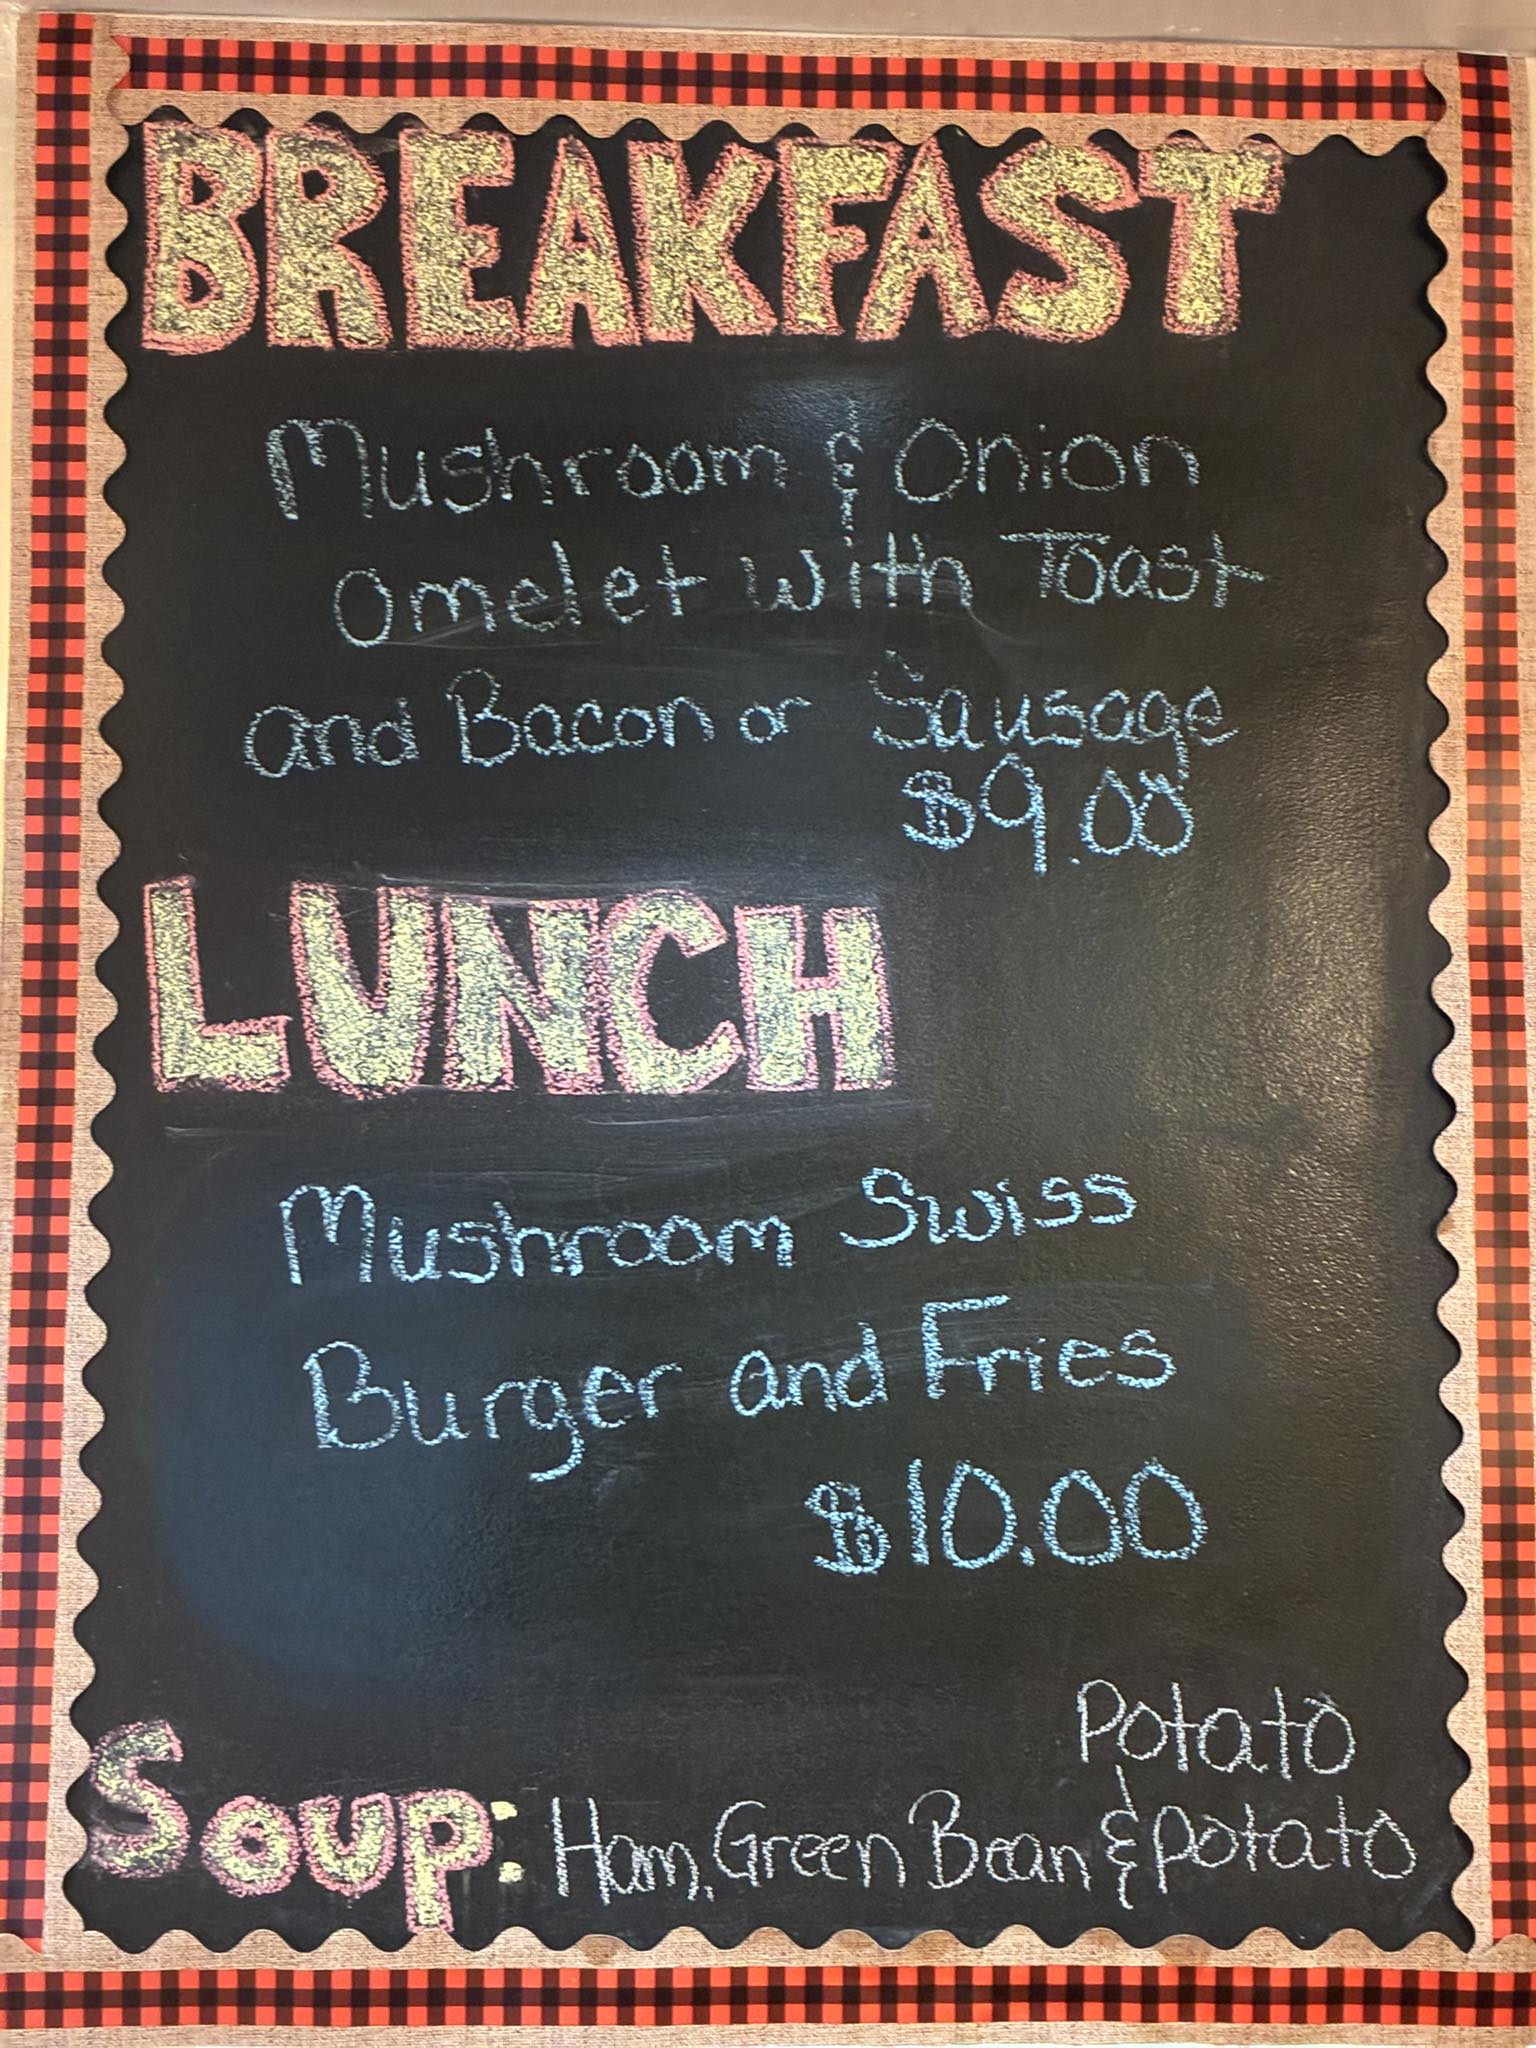 BREAKFAST
Mushroom & Onion
Omelet with Toast
and Bacon or Sausage
$9.00
LUNCH
Mushroom Swiss
Burger and Fries
$10.00
Potato
Soup: Ham, Green Bean & potato